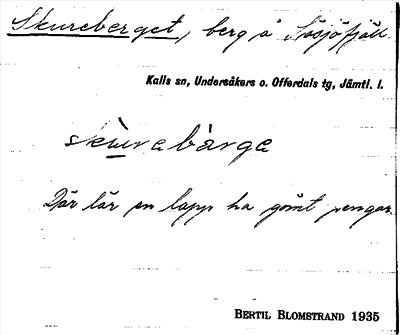 Skureberget, berg å Sösjöfjäll.
Kalls sn, Undersåkers o. Offerdals tg, Jämtl. l.
skùrebàrge
Där lär en lapp ha gömt pengar.
BERTIL BLOMSTRAND 1935